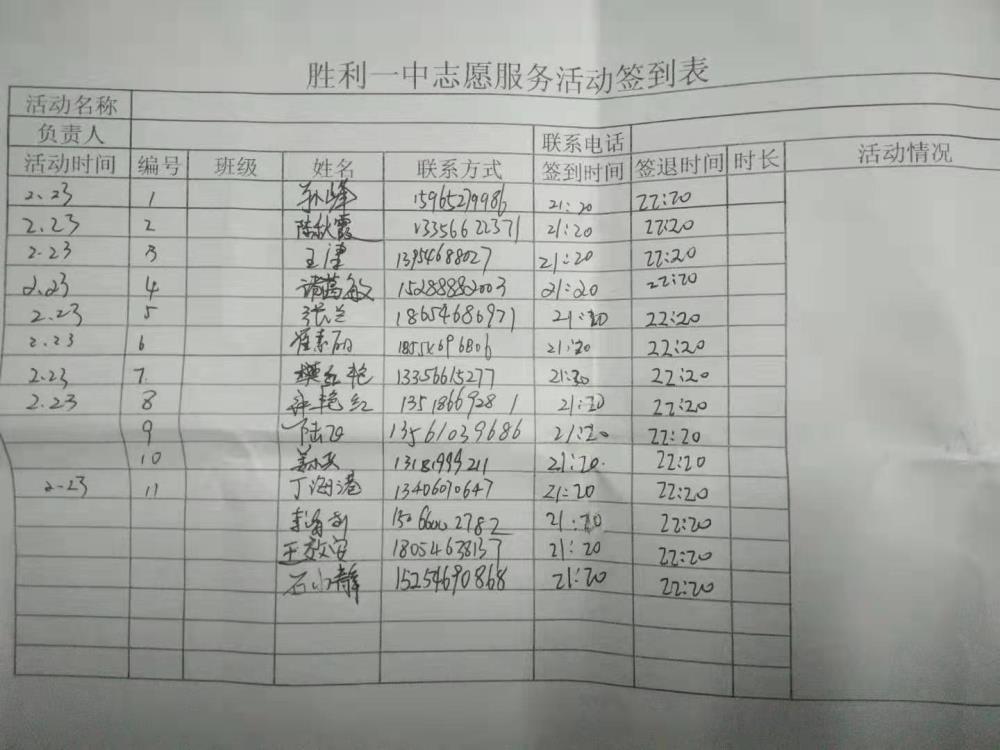 胜利一中志愿服务活动签到表
活动名称
负责人 联系电话
活动时间 编号 班级 姓名 联系方式 签到时间 签退时间 时长 活动情况
2.23 1 孙峰 15965279986 21:20 22:20
2.23 2 陈秋霞 13356622371 21:20 22:20
2.23 3 王津 13954688027 21:20 22:20
2.23 4 诸葛敏 15288882003 21:20 22:20
2.23 5 张兰 18654686971 21:20 22:20
2.23 6 崔素丽 18554696806 21:20 22:20
2.23 7. 红艳 13356615277 21:20 22:20
2.23 8 艳红 13518669281 21:20 22:20
9 陆飞 13561039686 21:20 22:20
10 21:20. 22:20
2-23 11 丁海港 13406070647 21:20 22:20
21:20 22:20
王效安 18054638137 21:20 22:20
石小静 15254690868 21:20 22:20